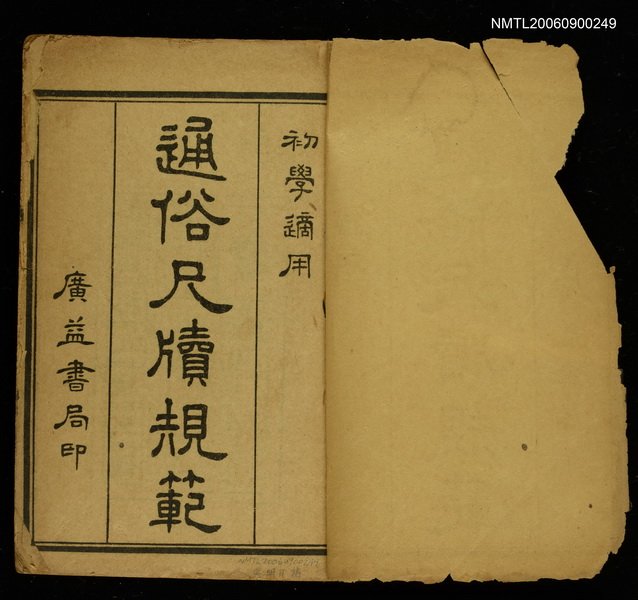 NMTL20060900249
初學適用
通俗尺牘規範
廣益書局印